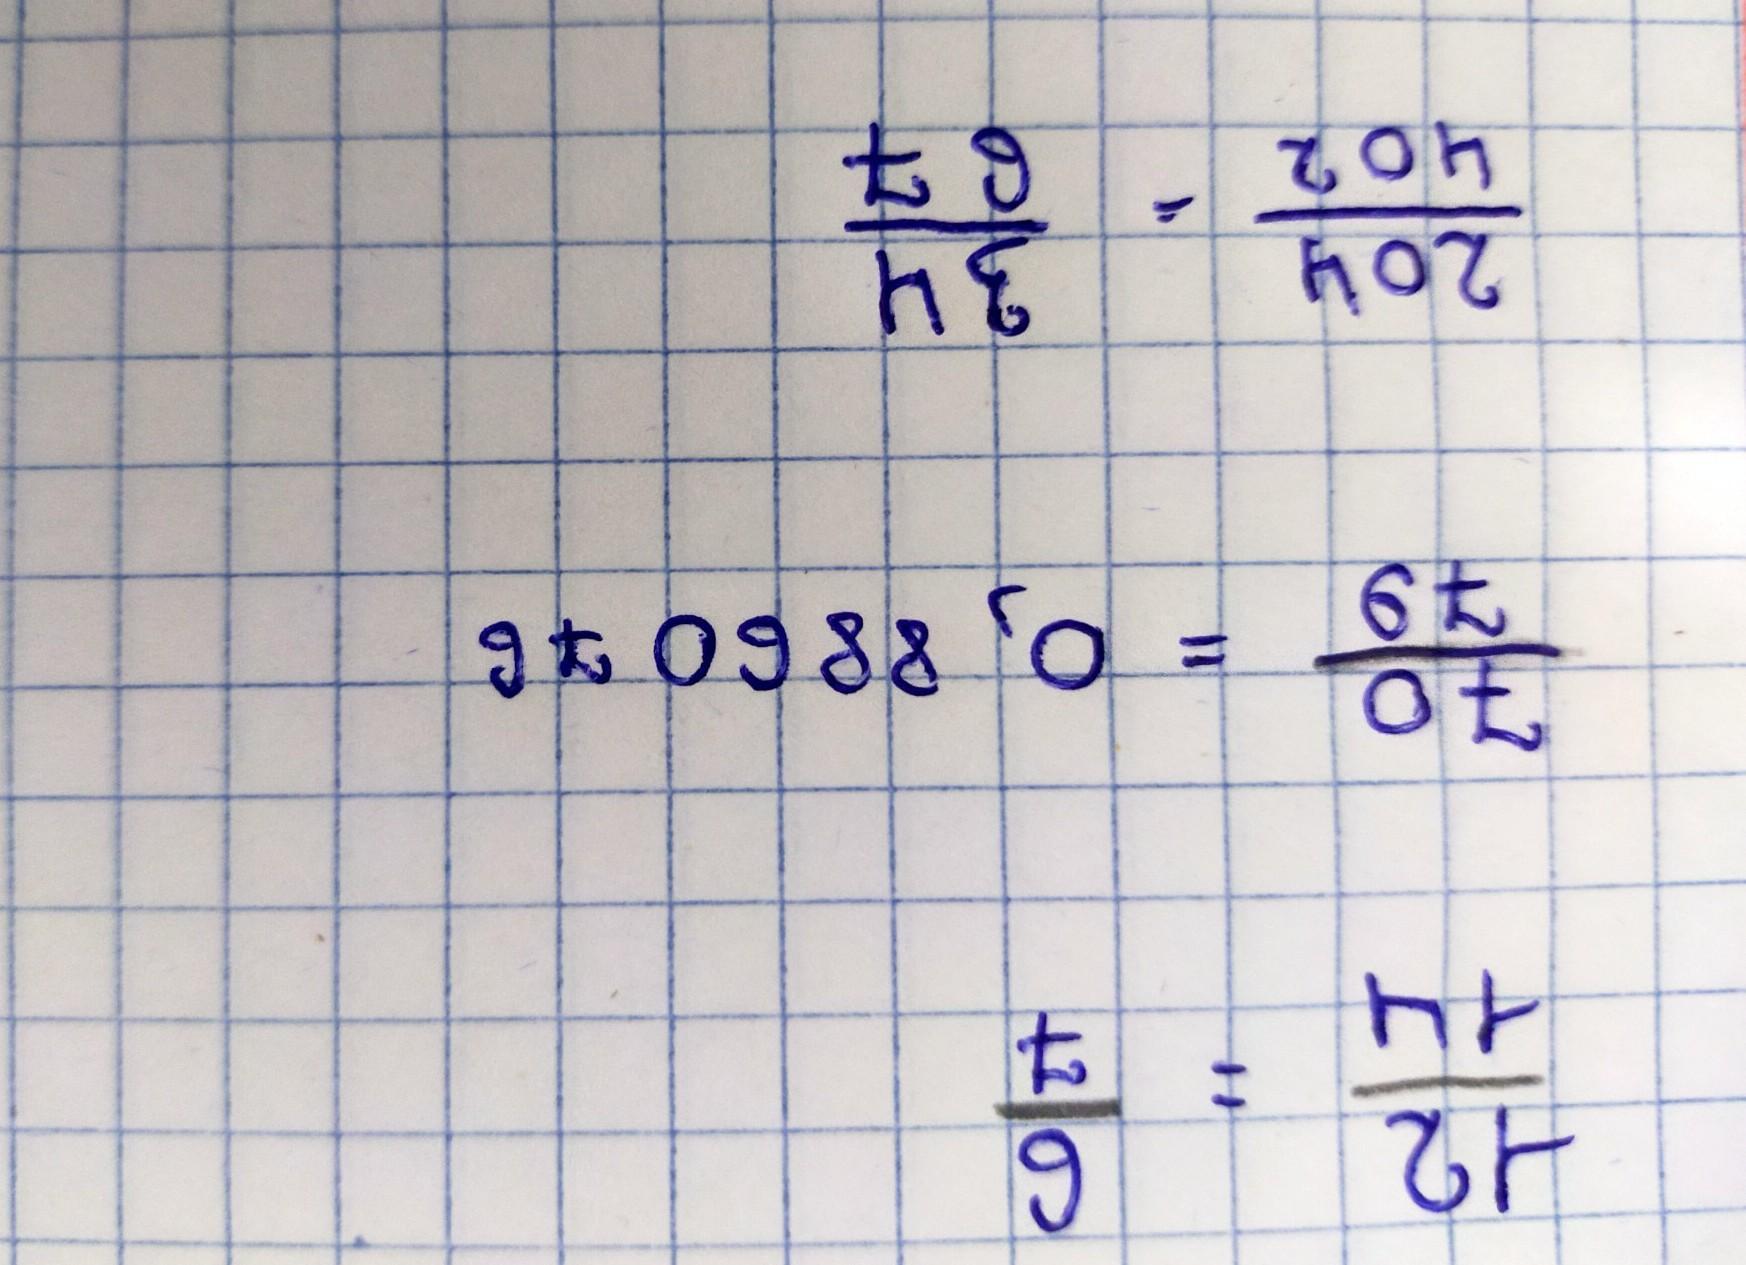 12/14 = 6/7
70/79 = 0,886076
204/402 = 34/67